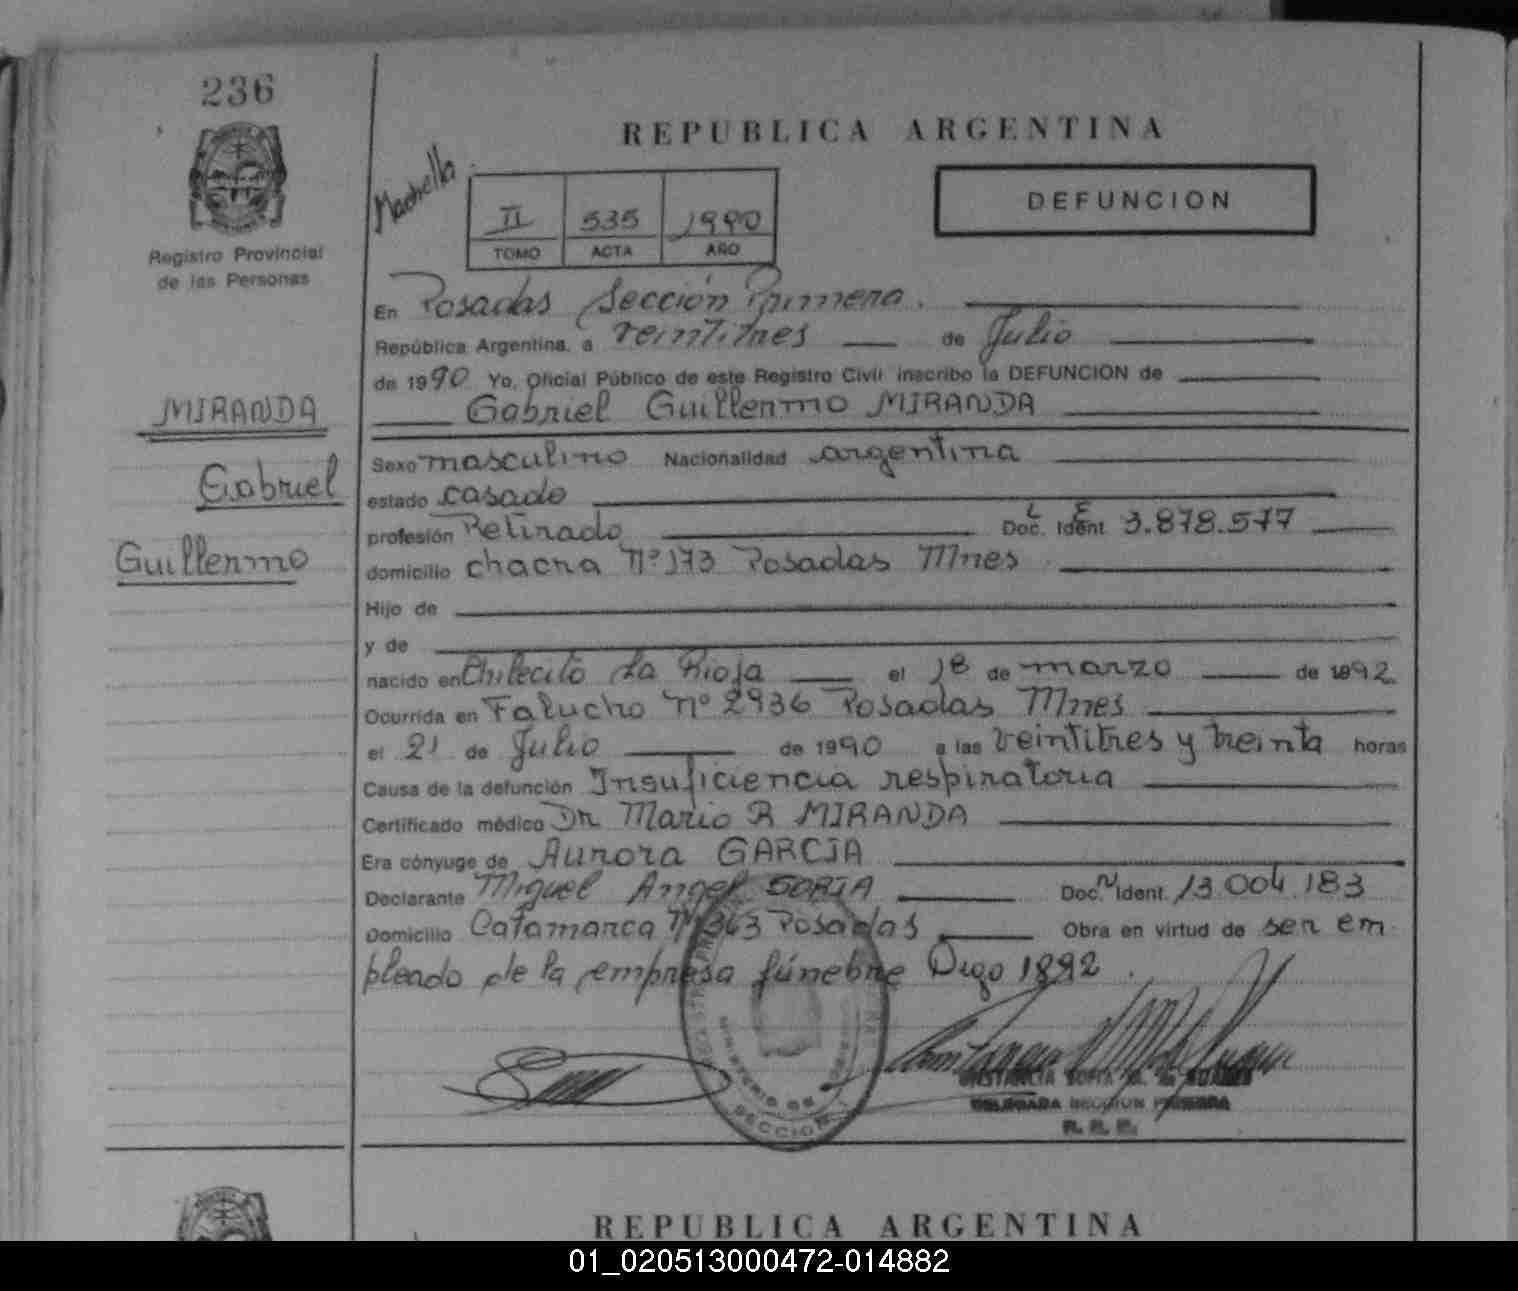 236
REPUBLICA ARGENTINA
Machella
II 535 1990
TOMO ACTA AÑO
DEFUNCION
Registro Provincial
de las Personas
En Posadas Sección Primera.
República Argentina, a veintitres de Julio
de 1990 Yo, Oficial Público de este Registro Civil inscribo la DEFUNCION de
Gabriel Guillermo MIRANDA
MIRANDA
Gabriel
Guillermo
Sexo masculino Nacionalidad argentina
estado casado
profesión Retirado Doc. Ident. L E 3.878.577
domicilio chacra Nº 173 Posadas Mnes
Hijo de
y de
nacido en Chilecito La Rioja el 18 de marzo de 1892
Ocurrida en Falucho nº 2936 Posadas Mnes
el 21 de Julio de 1990 a las veintitres y treinta horas
Causa de la defunción Insuficiencia respiratoria
Certificado médico Dr Mario R MIRANDA
Era cónyuge de Aurora GARCIA
Declarante Miguel Angel SORIA Doc. Ident. 13.004.183
Domicilio Catamarca Nº 363 Posadas Obra en virtud de ser em
pleado de la empresa fúnebre Digo 1892.
SECCION
DELEGADA SECCION PRIMERA
REPUBLICA ARGENTINA
01_020513000472-014882